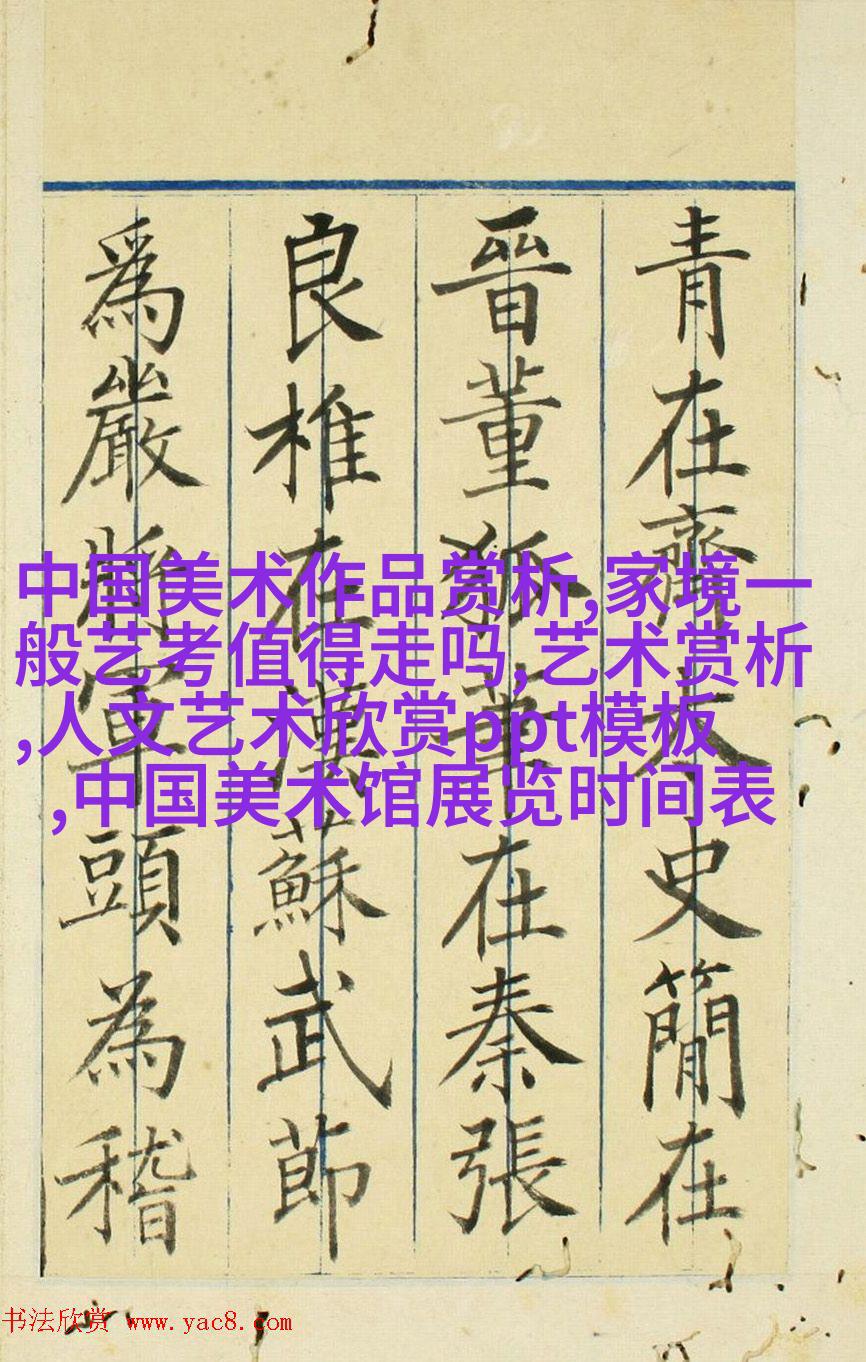 青在齊太史簡在
晉董狐筆在秦張
良椎在漢蘇武節
爲嚴將軍頭為稽
中国美术作品赏析,家境一
般艺考值得走吗,艺术赏析
,人文艺术欣赏ppt模板
,中国美术馆展览时间表
书法欣赏 www.yac8.com